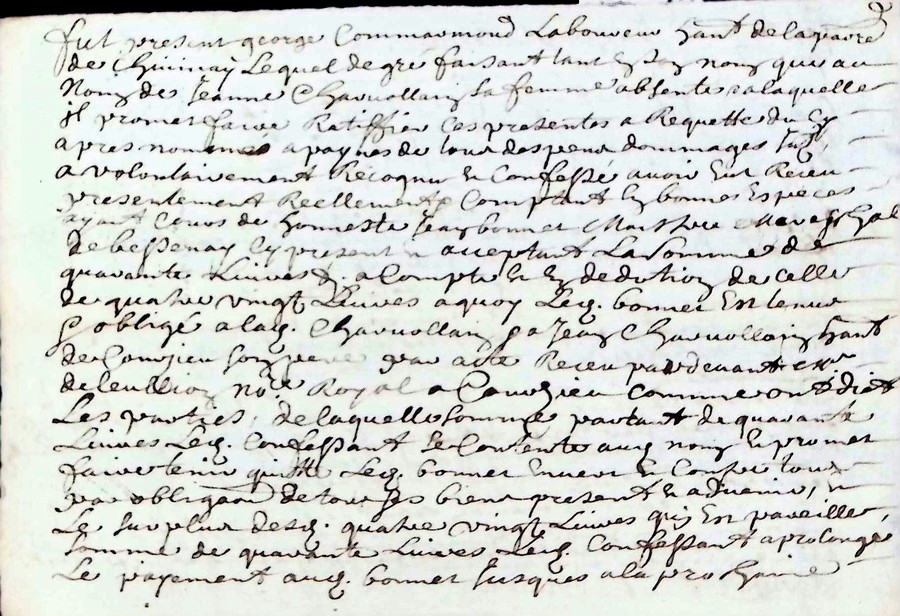 fut present george Commarmond Laboureur hant de la parre
de Chivinay Lequel de gré faisant tant en son nom que au
Nom de Jeanne Charvollain sa femme absente a laquelle
Il promet faire Ratiffier Ces presentes a Requette du Cy
apres nommé a paynes de tous despens dommages Intz,
a volontairement Recognu et Confessé avoir Eut Receu
presentement Reellement Comptant En bonnes Especes
ayant Cours de honneste Jean bonnet Maistre Mareschal
de bessenay Cy present et acceptant La somme de
quarante Livres a Compte et En dedution de celle
de quatre vingt Livres a quoy Led. bonnet Est tenu
& obligé a lad. Charvollain p a Jean Charvollain hant
de Courzieu son pere par acte Receu par devant Me
No.re Royal a Courzieu comme ont dict
Les parties, de laquelle somme partant de quarante
Livres Led. Confessant se Contente aud. nom et promet
faire tenir quitte Led. bonnet Envers et Contre tous
par obligaon de tous ses biens present et advenir, et
Le surplus desd. quatre vingt Livres qui Est pareille
somme de quarante Livres Led. Confessant a prolongé
Le payement aud. bonnet Jusques a la prochaine